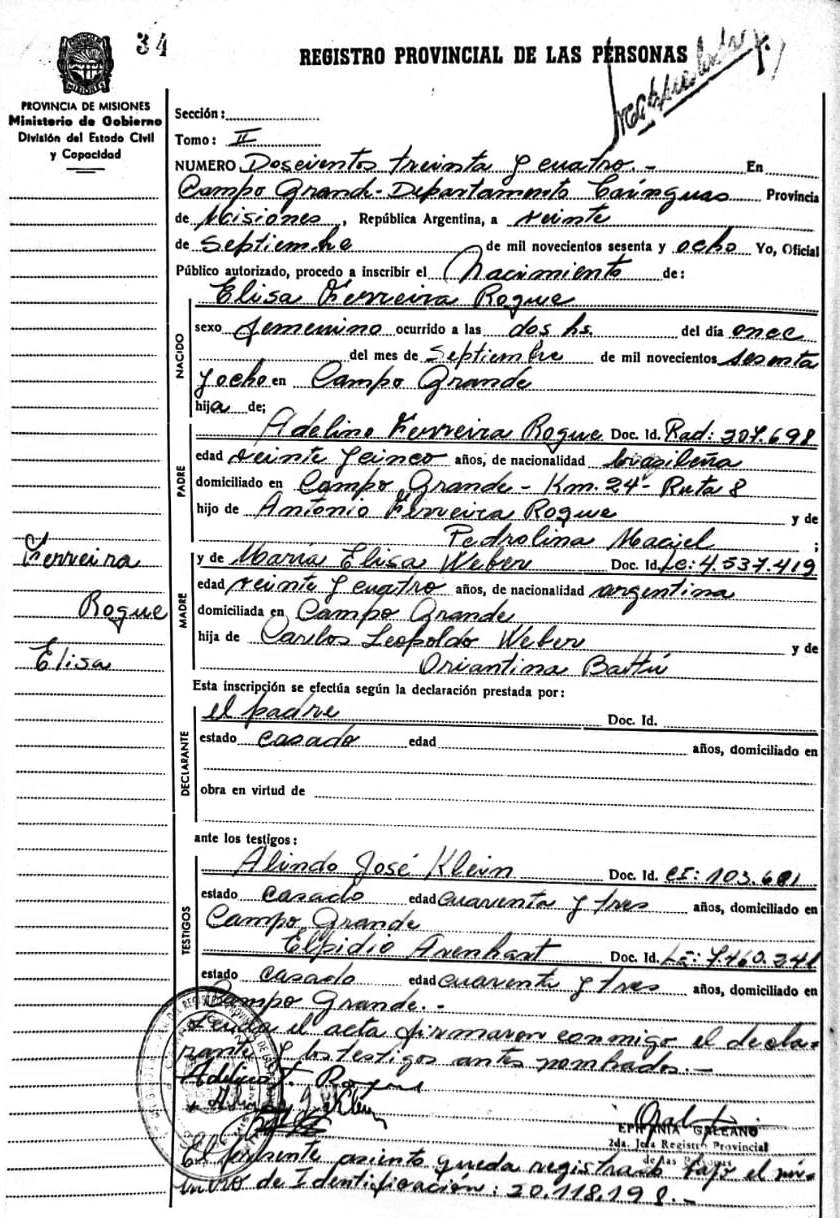 34
REGISTRO PROVINCIAL DE LAS PERSONAS
PROVINCIA DE MISIONES
Ministerio de Gobierno
División del Estado Civil
y Capacidad
Sección:
Tomo: II
NUMERO Doscientos treinta y cuatro.- En
Campo Grand-Departamento Cainguas Provincia
de Misiones, República Argentina, a veinte
de Septiembre de mil novecientos sesenta y ocho Yo, Oficial
Público autorizado, procedo a inscribir el Nacimiento de:
Elisa Ferreira Roque
NACIDO
sexo femenino ocurrido a las dos hs. del día once
del mes de Septiembre de mil novecientos sesenta
y ocho en Campo Grande
hija de;
PADRE
Adelino Ferreira Roque Doc. Id. Rad: 207.698
edad veinte y cinco años, de nacionalidad brasileña
domiciliado en Campo Grande - Km. 24 - Ruta 8
hijo de Antonio Ferreira Roque y de
Pedrolina Maciel ;
MADRE
y de María Elisa Weber Doc. Id. LC: 4.537.419
edad veinte y cuatro años, de nacionalidad argentina
domiciliada en Campo Grande
hija de Carlos Leopoldo Weber y de
Oriantina Battú
Ferreira
Roque
Elisa
Esta inscripción se efectúa según la declaración prestada por:
DECLARANTE
el padre Doc. Id.
estado casado edad años, domiciliado en
obra en virtud de
ante los testigos:
TESTIGOS
Alindo José Klein Doc. Id. CI: 103.601
estado casado edad cuarenta y tres años, domiciliado en
Campo Grande
Elpidio Arenhart Doc. Id. LE: 7.460.241
estado casado edad cuarenta y tres años, domiciliado en
Campo Grande.-
Leída el acta firmaron conmigo el decla-
rante y los testigos antes nombrados.-
Adelino F. Roque
Klein
EPIFANIA GALEANO
2da. Jefa Registro Provincial
de las Personas
El presente asiento queda registrado bajo el nú-
mero de Identificación: 20.118.198.-